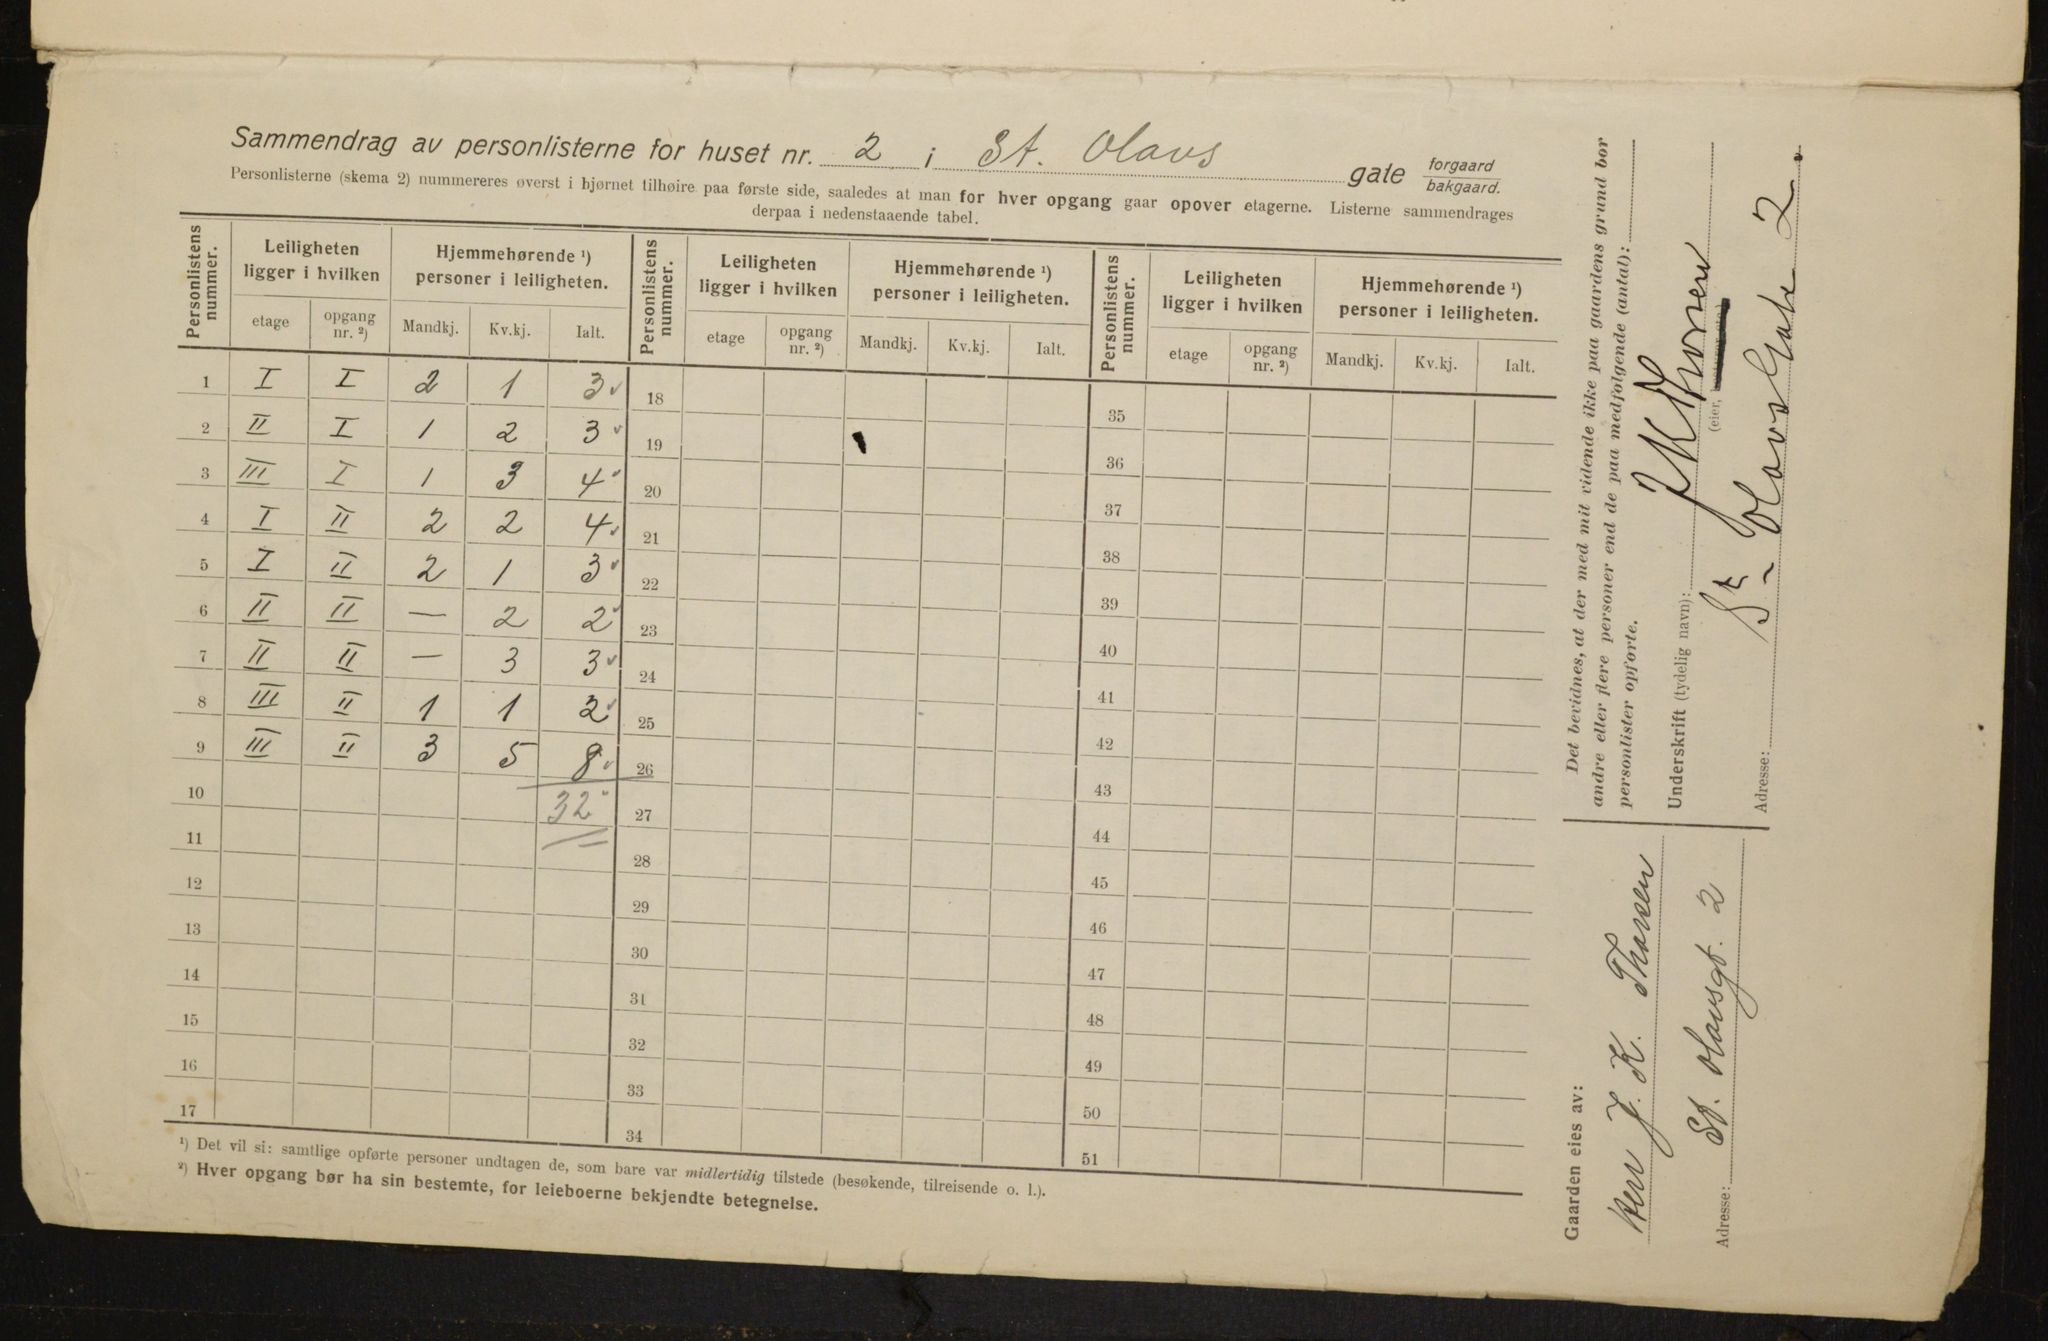 Sammendrag av personlisterne for huset nr. 2 i St. Olavs gate forgaard bakgaard.
Personlisterne (skema 2) nummereres øverst i hjørnet tilhøire paa første side, saaledes at man for hver opgang gaar opover etagerne. Listerne sammendrages
derpaa i nedenstaaende tabel.
Personlistens nummer. Leiligheten ligger i hvilken Hjemmehørende ¹) personer i leiligheten. Personlistens nummer. Leiligheten ligger i hvilken Hjemmehørende ¹) personer i leiligheten. Personlistens nummer. Leiligheten ligger i hvilken Hjemmehørende ¹) personer i leiligheten.
etage opgang nr. ²) Mandkj. Kv.kj. Ialt. etage opgang nr. ²) Mandkj. Kv.kj. Ialt. etage opgang nr. ²) Mandkj. Kv.kj. Ialt.
1 I I 2 1 3 18 35
2 II I 1 2 3 19 36
3 III I 1 3 4 20 37
4 I II 2 2 4 21 38
5 I II 2 1 3 22 39
6 II II — 2 2 23 40
7 II II — 3 3 24 41
8 III II 1 1 2 25 42
9 III II 3 5 8 26 43
10 32 27 44
11 28 45
12 29 46
13 30 47
14 31 48
15 32 49
16 33 50
17 34 51
¹) Det vil si: samtlige opførte personer undtagen de, som bare var midlertidig tilstede (besøkende, tilreisende o. l.).
²) Hver opgang bør ha sin bestemte, for leieboerne bekjendte betegnelse.
Det bevidnes, at der med mit vidende ikke paa gaardens grund bor
andre eller flere personer end de paa medfølgende (antal):
personlister opførte.
Underskrift (tydelig navn): J K Thoresen
(eier,
Adresse: St. Olavs Gate 2.
Gaarden eies av:
Herr J. K. Thoresen
Adresse: St. Olavsgt. 2